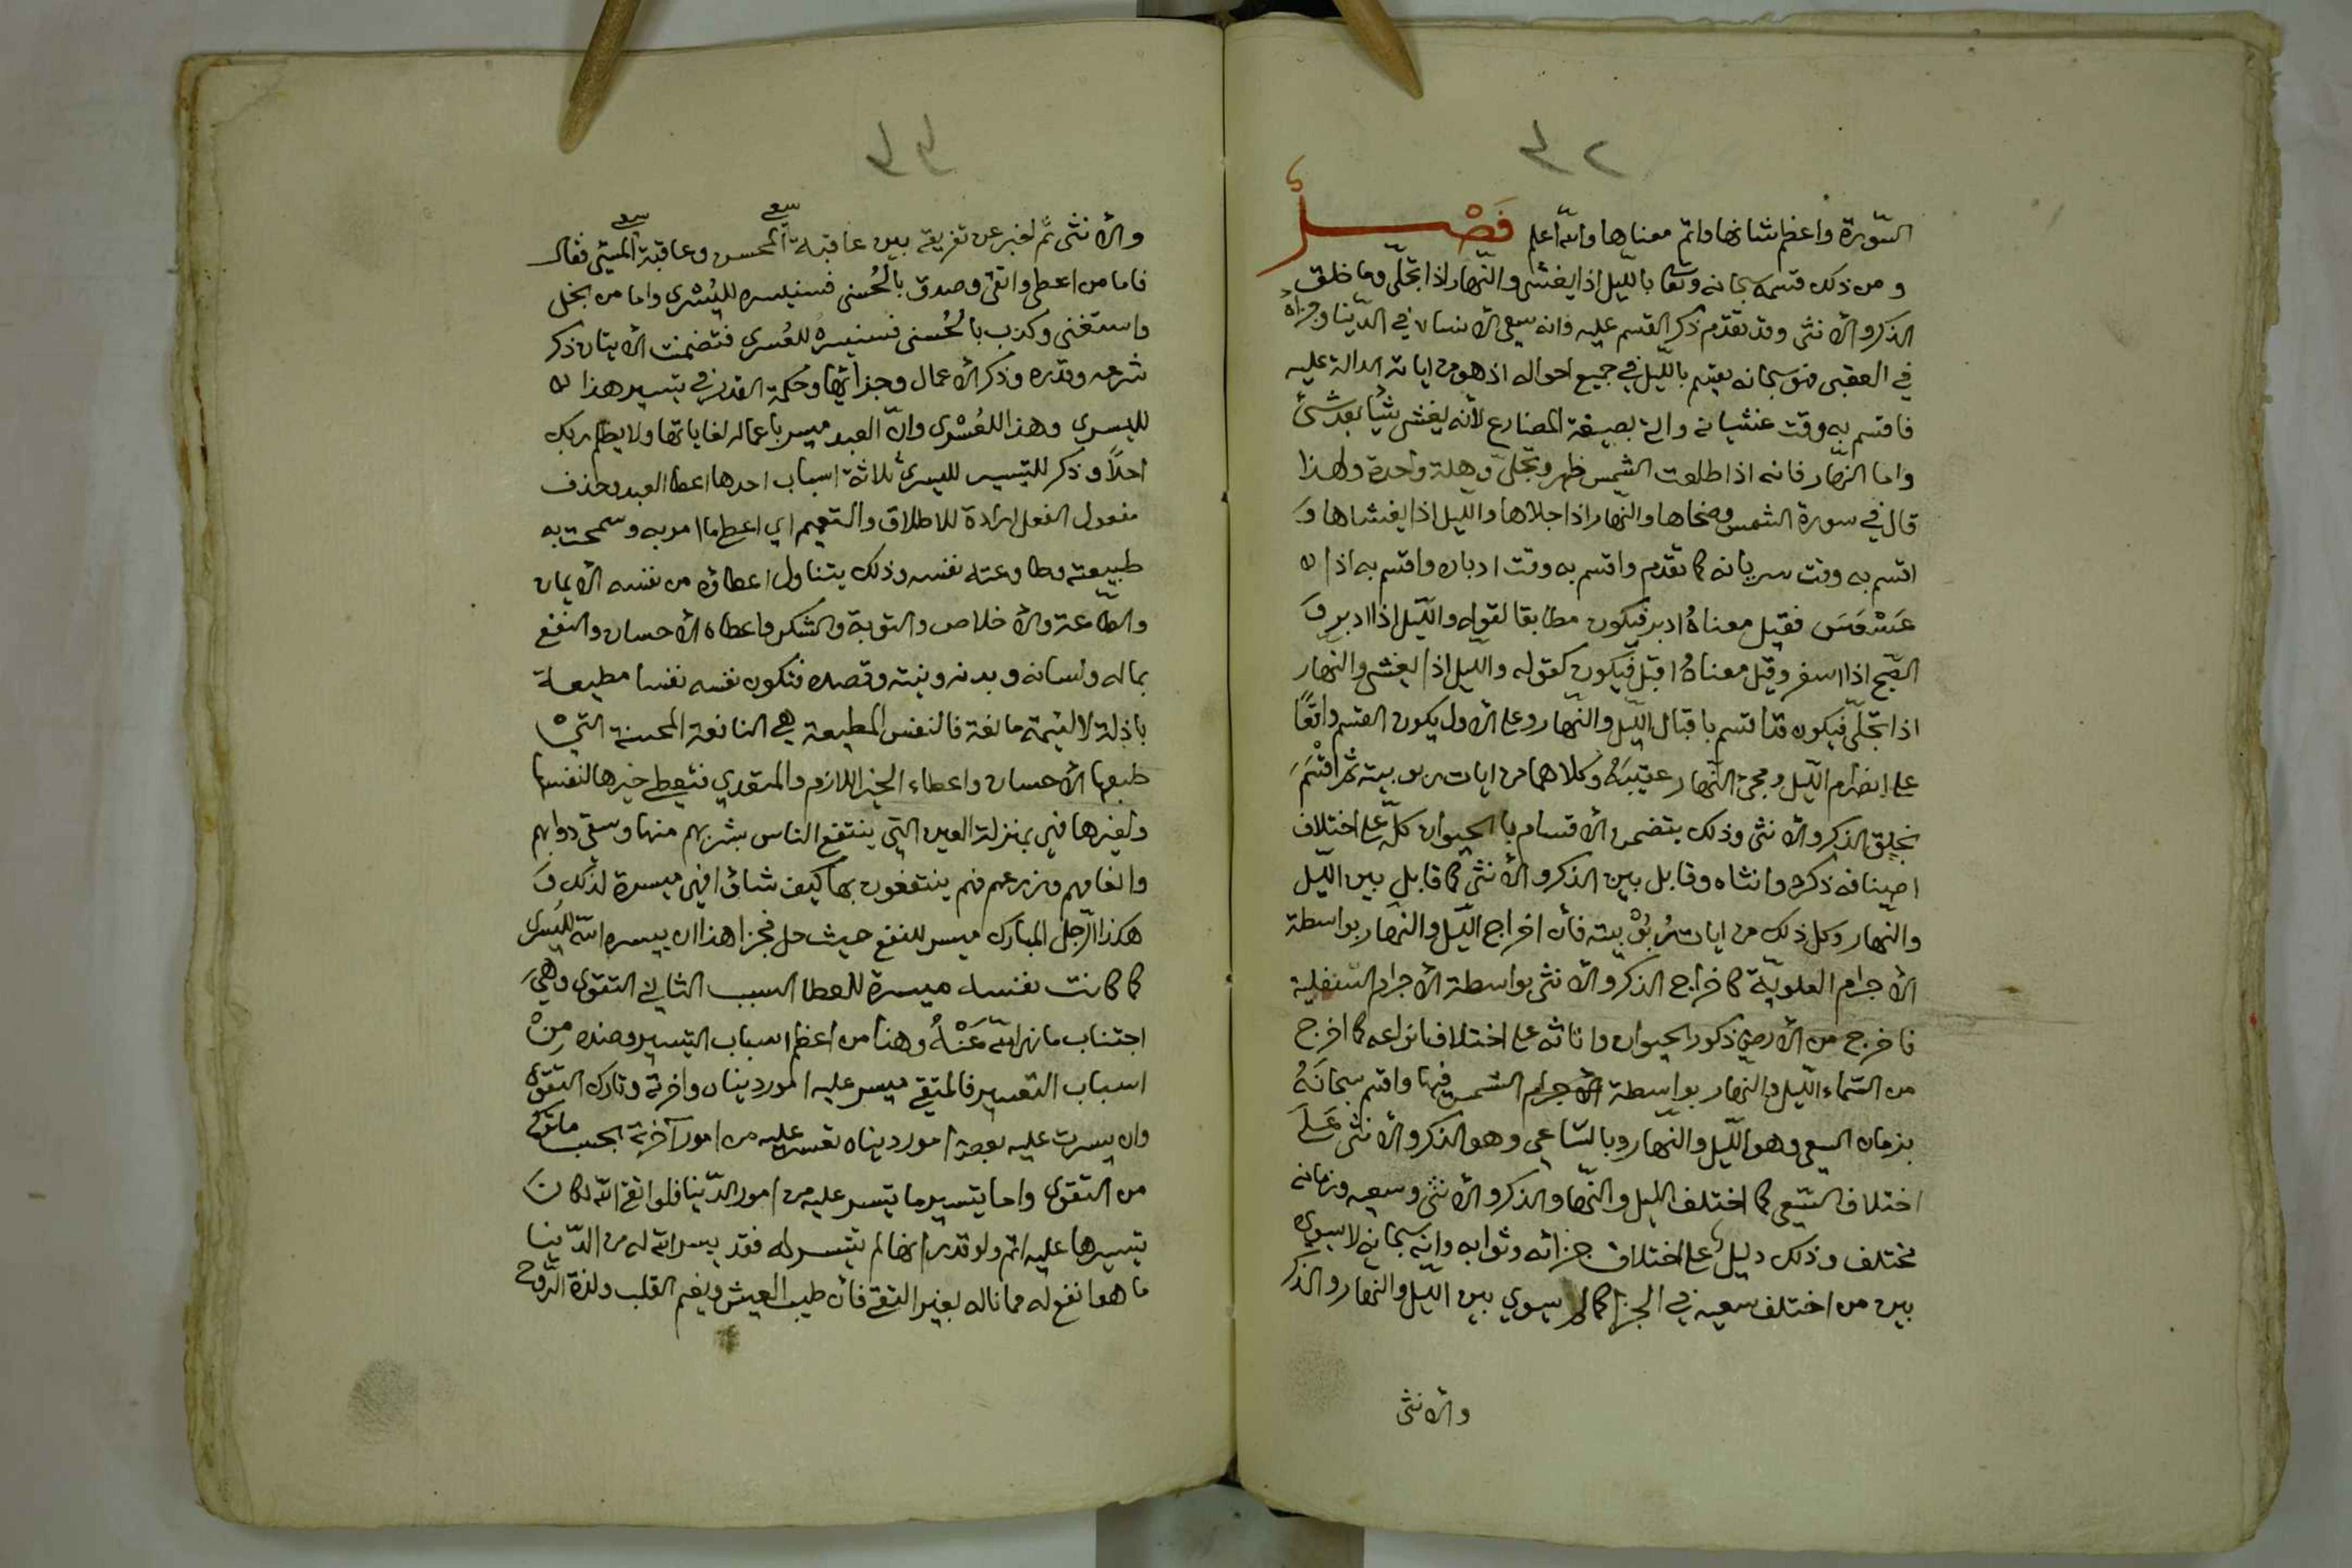 السّورة واعظم شانها واتم معناها والله اعلم فَصْـــل
ومن ذلك قسمه سبحانه وتعا بالليل اذا يغشى والنّهار اذا تجلّى وما خلق
الذكر والأنثى وقد تقدم ذكر القسم عليه وانه سعى الانسان في الدّنيا وجزاؤه
في العقبى فهو سبحانه يقسم باللّيل في جميع احواله اذ هو من اياته الدالة عليه
فاقسم به وقت غشيانه واتى بصيغة المضارع لأنه يغشى شيًا بعد شئ
واما النهار فانه اذا طلعت الشمس ظهر وتجلّى وهلة واحدة ولهذا
قال في سورة الشمس وضحاها والنّهار اذا جلاها والليل اذا يغشاها وَ
اقسم به وقت سريانه كما تقدم واقسم به وقت ادباره واقسم به اذا
عَسْعَسَ فقيل معناهُ ادبر فيكون مطابقا لقوله والّيل اذا ادبر وَ
الصّبح اذا اسفر وقيل معناهُ اقبل فيكون كقوله والليل اذا يغشى والنهار
اذا تجلّى فيكون قد اقسم باقبال الليّل والنّهار وعلى الاول يكون القسم واقعًا
على انصرام الّيل ومجئ النّهار عقيبَهُ وكلاهما من ايات ربوبيته ثم اقْسَمَ
بخلق الذكر والأنثى وذلك يتضمن الأقسام بالحيوان كلّه على اختلاف
اصنافه ذكره وانثاه وقابل بين الذكر والأنثى كما قابل بين الّليل
والنّهار وكل ذلك من ايات رُبُوْبيته فأن اخراج الّليل والنّهار بواسطة
الأجرام العلويّة كاخراج الذكر والأنثى بواسطة الأجرام السّفلية
فاخرج من الأرض ذكور الحيوان واناثه على اختلاف انواعه كما اخرج
من السّماء الّليل والنهار بواسطة الأجرام الشمس فيها واقسم سبحانَهُ
بزمان السعى وهو اللّيل والنّهار وبالسّاعى وهو الذكر والأنثى عَلَى
اختلاف السّعى كما اختلف الليل والنّهار والذكر والأنثى وسعيه وزمانه
مختلف وذلك دليل على اختلاف جزائه وثوابه وانه سبحانه لا يسوى
بين من اختلف سعيه في الجزا كما لا يسوي بين الّليل والنهار والذكر
والأنثى
والأنثى ثم اخبر عن تفريقه بين عاقبة سعى المحسن وعاقبة سعى المسئ فقال
فاما من اعطى واتقى وصدق بالحُسنى فسنيسره لليُسْرى واما من بخل
واستغنى وكذب بالحُسنى فسنيسرهُ للعُسرى فتضمنت الأيتان ذكر
شرعه وقدره وذكر الأعمال وجزائها وحكمة القدر في تيسير هذا
لليسرى وهذا للعُسْرى وانّ العبد ميسر باعماله لغاياتها ولا يظلم ربك
احدًا وذكر للتيسير لليسرى ثلاثة اسباب احدها اعطا العبد وحذف
مفعول الفعل ارادة للاطلاق والتعميم اي اعطى ما امر به وسمحت به
طبيعته وطاوعته نفسه وذلك يتناول اعطاؤه من نفسه الأيمان
والطّاعة والأخلاص والتوبة والشكر واعطاه الأحسان والنفع
بماله ولسانه وبدنه ونيته وقصده فتكون نفسه نفسا مطيعة
باذلة لا لئيمة مانعة فالنفس المطيعة هي النافعة المحسنة التي
طبعها الأحسان واعطاء الخير اللازم والمتعدي فتعطي خيرها لنفسها
ولغيرها فهي بمنزلة العين التي ينتفع الناس بشربهم منها وسقى دوابهم
وانعامهم وزرعهم فهم ينتفعون بها كيف شاؤا فهي ميسرة لذلك وَ
هكذا الرّجل المبارك ميسر للنفع حيث حل فجزا هذا ان ييسره الله لليُسرى
كما كانت نفسه ميسرة للعطا السبب الثاني التقوى وهي
اجتناب ما نهى الله عَنْهُ وهذا من اعظم اسباب التيسير وضده مِنْ
اسباب التعسير فالمتقي ميسر عليه امور دنياه واخرته وتارك التقوى
وان يسرت عليه بعض امور دنياه تعسر عليه من امور آخرته بحسب ما تركه
من التقوى واما تيسير ما تيسر عليه من امور الدّنيا فلو اتقى الله لكان
تيسيرها عليه اتم ولو قدر انها لم تتيسر له فقد يسر الله له من الدّنيا
ما هو انفع له مما ناله بغير التقى فأن طيب العيش ونعيم القلب ولذة الرّوح